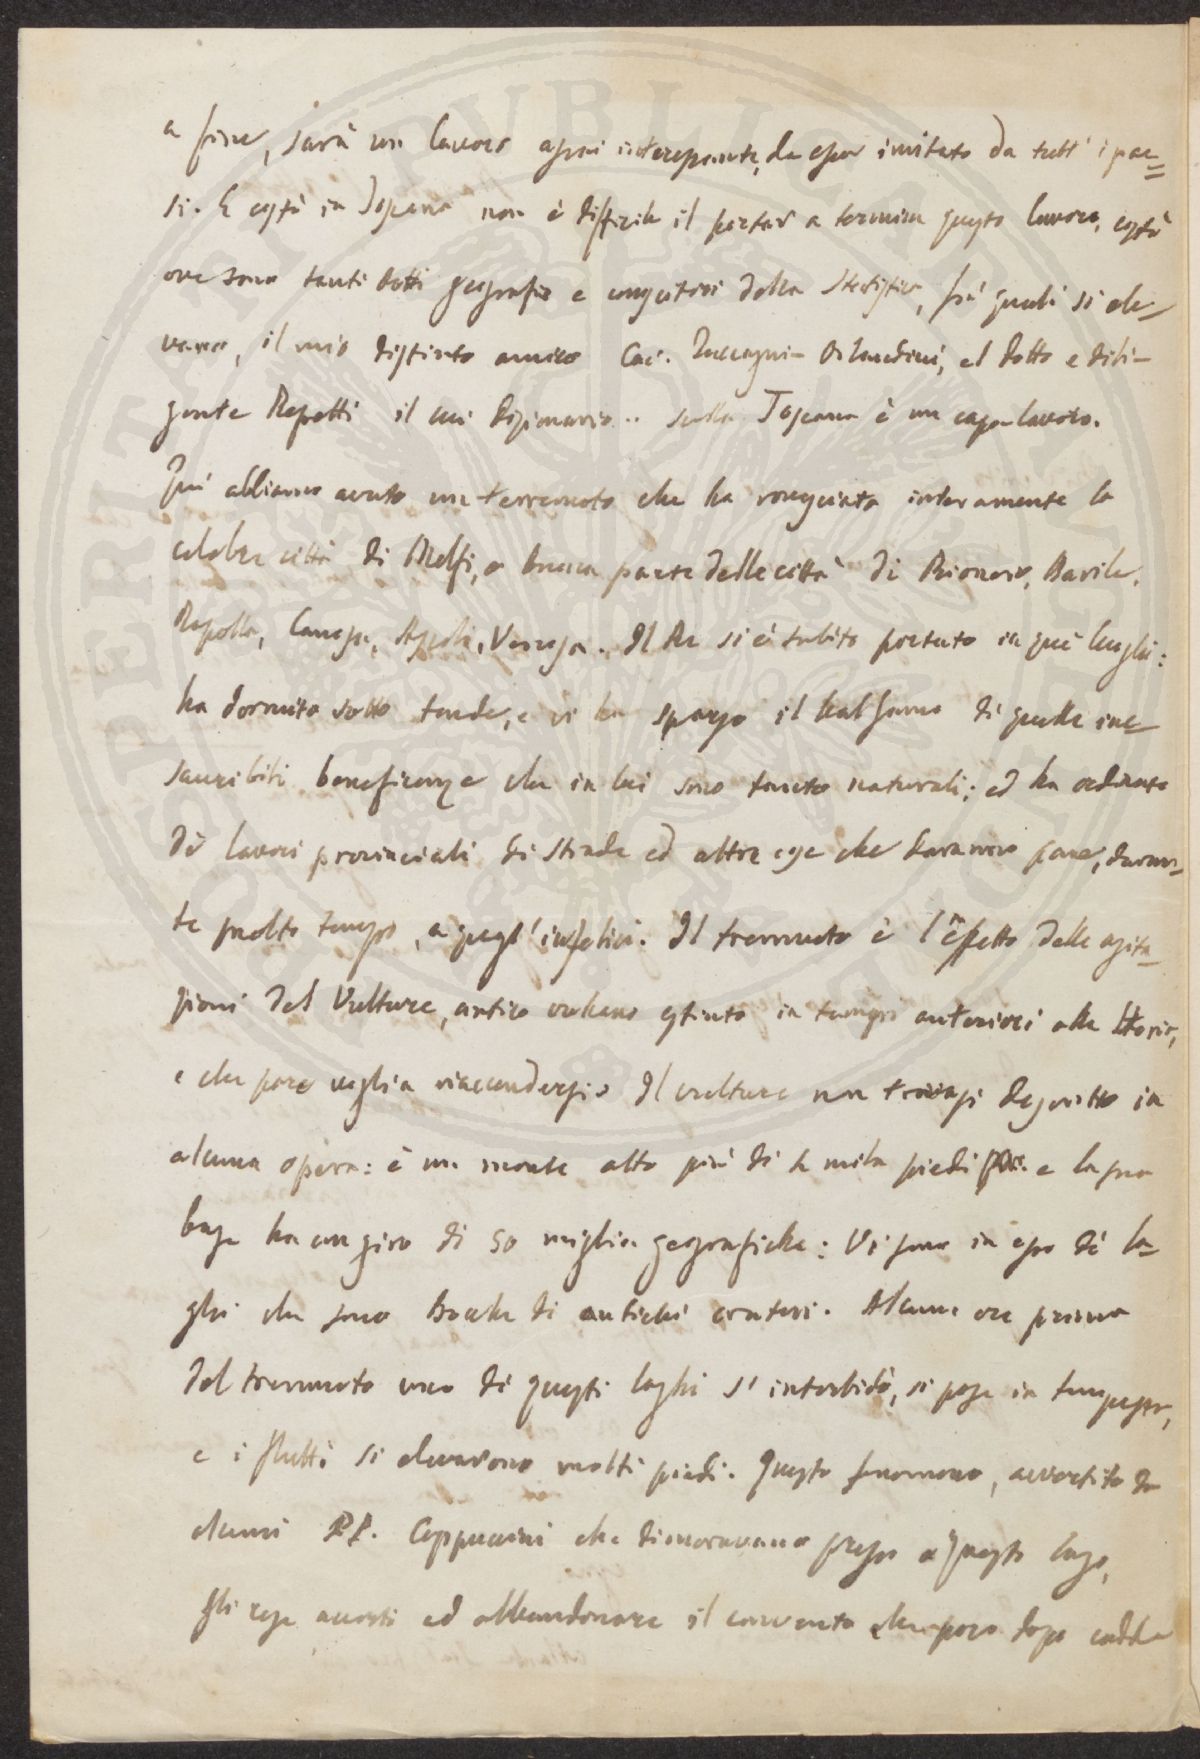 a fine, sarà un lavoro assai interessante, da esser imitato da tutt' i pae=
si. E costì in Toscana non è difficile il portar a termine questo lavoro, costà
ove sono tanti dotti geografi e conoscitori della Statistica, fra' quali si ele-
vano, il mio distinto amico Cav. Zuccagni-Orlandini, el dotto e dili-
gente Repetti il cui Dizionario .. sulla Toscana è un capo-lavoro.
Quì abbiamo avuto un terremoto che ha conquisata interamente la
celebre città di Melfi, e buona parte delle città di Rionero, Barile,
Rapolla, Canosa, Ascoli, Venosa. Il Re si è subito portato in que' luoghi:
ha dormito sotto tende, e vi ha sparso il balsamo di quelle ine-
sauribili beneficenze che in lui sono tanto naturali; ed ha ordinato
de' lavori provinciali di strade ed altre cose che daranno pane, duran-
te molto tempo, a quegl' infelici. Il tremuoto è l'effetto delle agita-
zioni del Vulture, antico vulcano estinto in tempi anteriori alla Storia,
e che pare voglia riaccendersi. Il vulture non trovasi descritto in
alcuna opera: è un monte alto più di 4 mila piedi e la sua
base ha un giro di 50 miglia geografiche: Vi sono in esso de' la-
ghi che sono Bocche di antichi crateri. Alcune ore prima
del tremuoto uno di questi laghi s' intorbidò, si pose in tempesta,
e i flutti si elevarono molti piedi. Questo fenomeno, avvertito da
alcuni PP. Cappuccini che dimoravano presso a questo lago,
gli rese accorti ed abbandonare il convento che poco dopo cadde